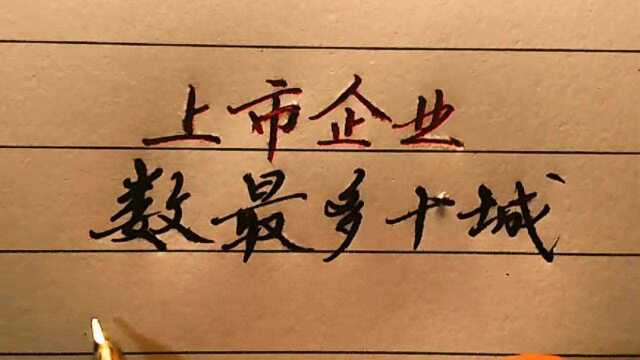 上市企业
数最多十城